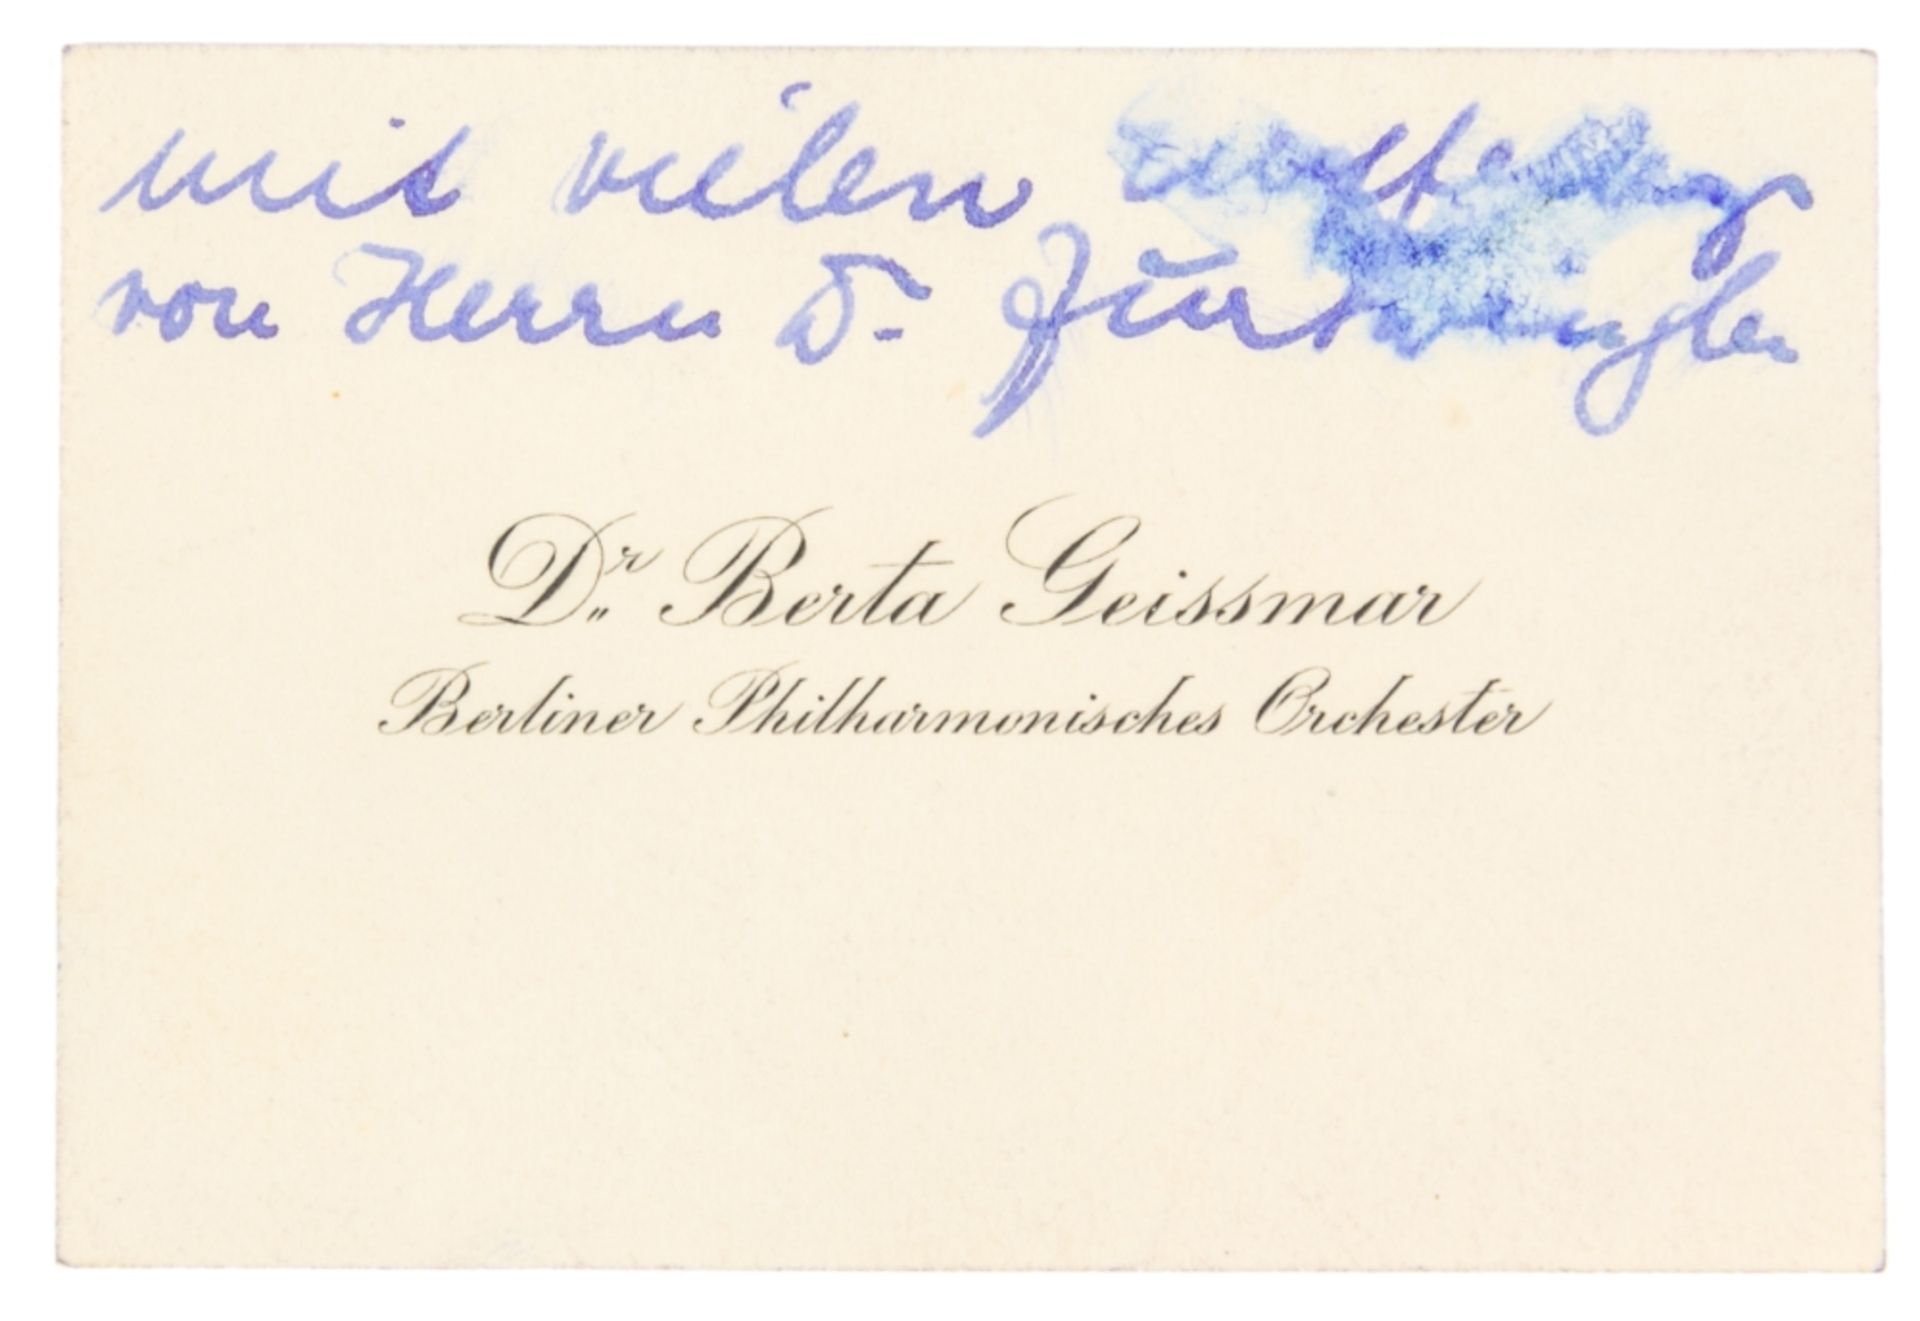 mit vielen
von Herrn Dr. Furtwängler
Dr. Berta Geissmar
Berliner Philharmonisches Orchester